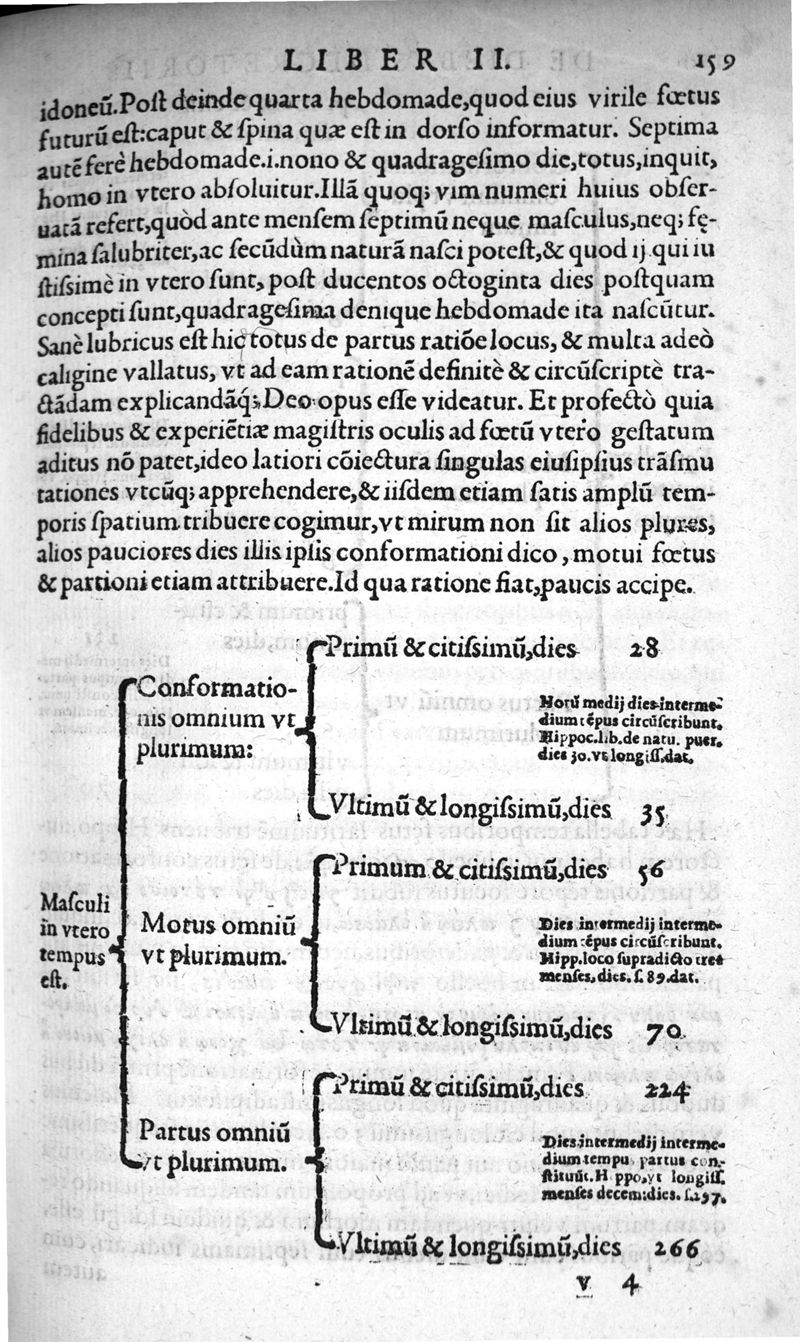 LIBER II. 159
idoneũ.Poſt deinde quarta hebdomade,quod eius virile fœtus
futurũ eſt:caput & ſpina quæ eſt in dorſo informatur. Septima
autẽ ferè hebdomade.i.nono & quadrageſimo die,totus,inquit,
homo in vtero abſoluitur.Illã quoqꝫ vim numeri huius obſer-
uatã refert,quòd ante menſem ſeptimũ neque maſculus,neqꝫ fę-
mina ſalubriter,ac ſecũdùm naturã naſci poteſt,& quod ij qui iu
ſtiſsimè in vtero ſunt, poſt ducentos octoginta dies poſtquam
concepti ſunt,quadrageſima denique hebdomade ita naſcũtur.
Sanè lubricus eſt hic totus de partus ratiõe locus, & multa adeò
caligine vallatus, vt ad eam rationẽ definitè & circũſcriptè tra-
ctãdam explicandãqꝫ,Deo opus eſſe videatur. Et profectò quia
fidelibus & experiẽtiæ magiſtris oculis ad fœtũ vtero geſtatum
aditus nõ patet,ideo latiori cõiectura ſingulas eiuſipſius trãſmu
tationes vtcũqꝫ apprehendere,& iiſdem etiam ſatis amplũ tem-
poris ſpatium tribuere cogimur,vt mirum non ſit alios plures,
alios pauciores dies illis ipſis conformationi dico, motui fœtus
& partioni etiam attribuere.Id qua ratione fiat,paucis accipe.
Maſculi
in vtero
tempus
eſt.
Conformatio-
nis omnium vt
plurimum:
Primũ & citiſsimũ,dies 28
Horũ medij dies interme-
dium tẽpus circũſcribunt.
Hippoc.lib.de natu. puer.
dies 30.vt longiſſ.dat.
Vltimũ & longiſsimũ,dies 35
Motus omniũ
vt plurimum.
Primum & citiſsimũ,dies 56
Dies intermedij interme-
dium tẽpus circũſcribunt.
Hipp.loco ſupradicto tres
menſes,dies. ſ.89.dat.
Vltimũ & longiſsimũ,dies 70
Partus omniũ
vt plurimum.
Primũ & citiſsimũ,dies 224
Dies intermedij interme-
dium tempu partus con-
ſtituũt.H ppo,vt longiſſ.
menſes decem:dies. ſ.297.
Vltimũ & longiſsimũ,dies 266
v 4